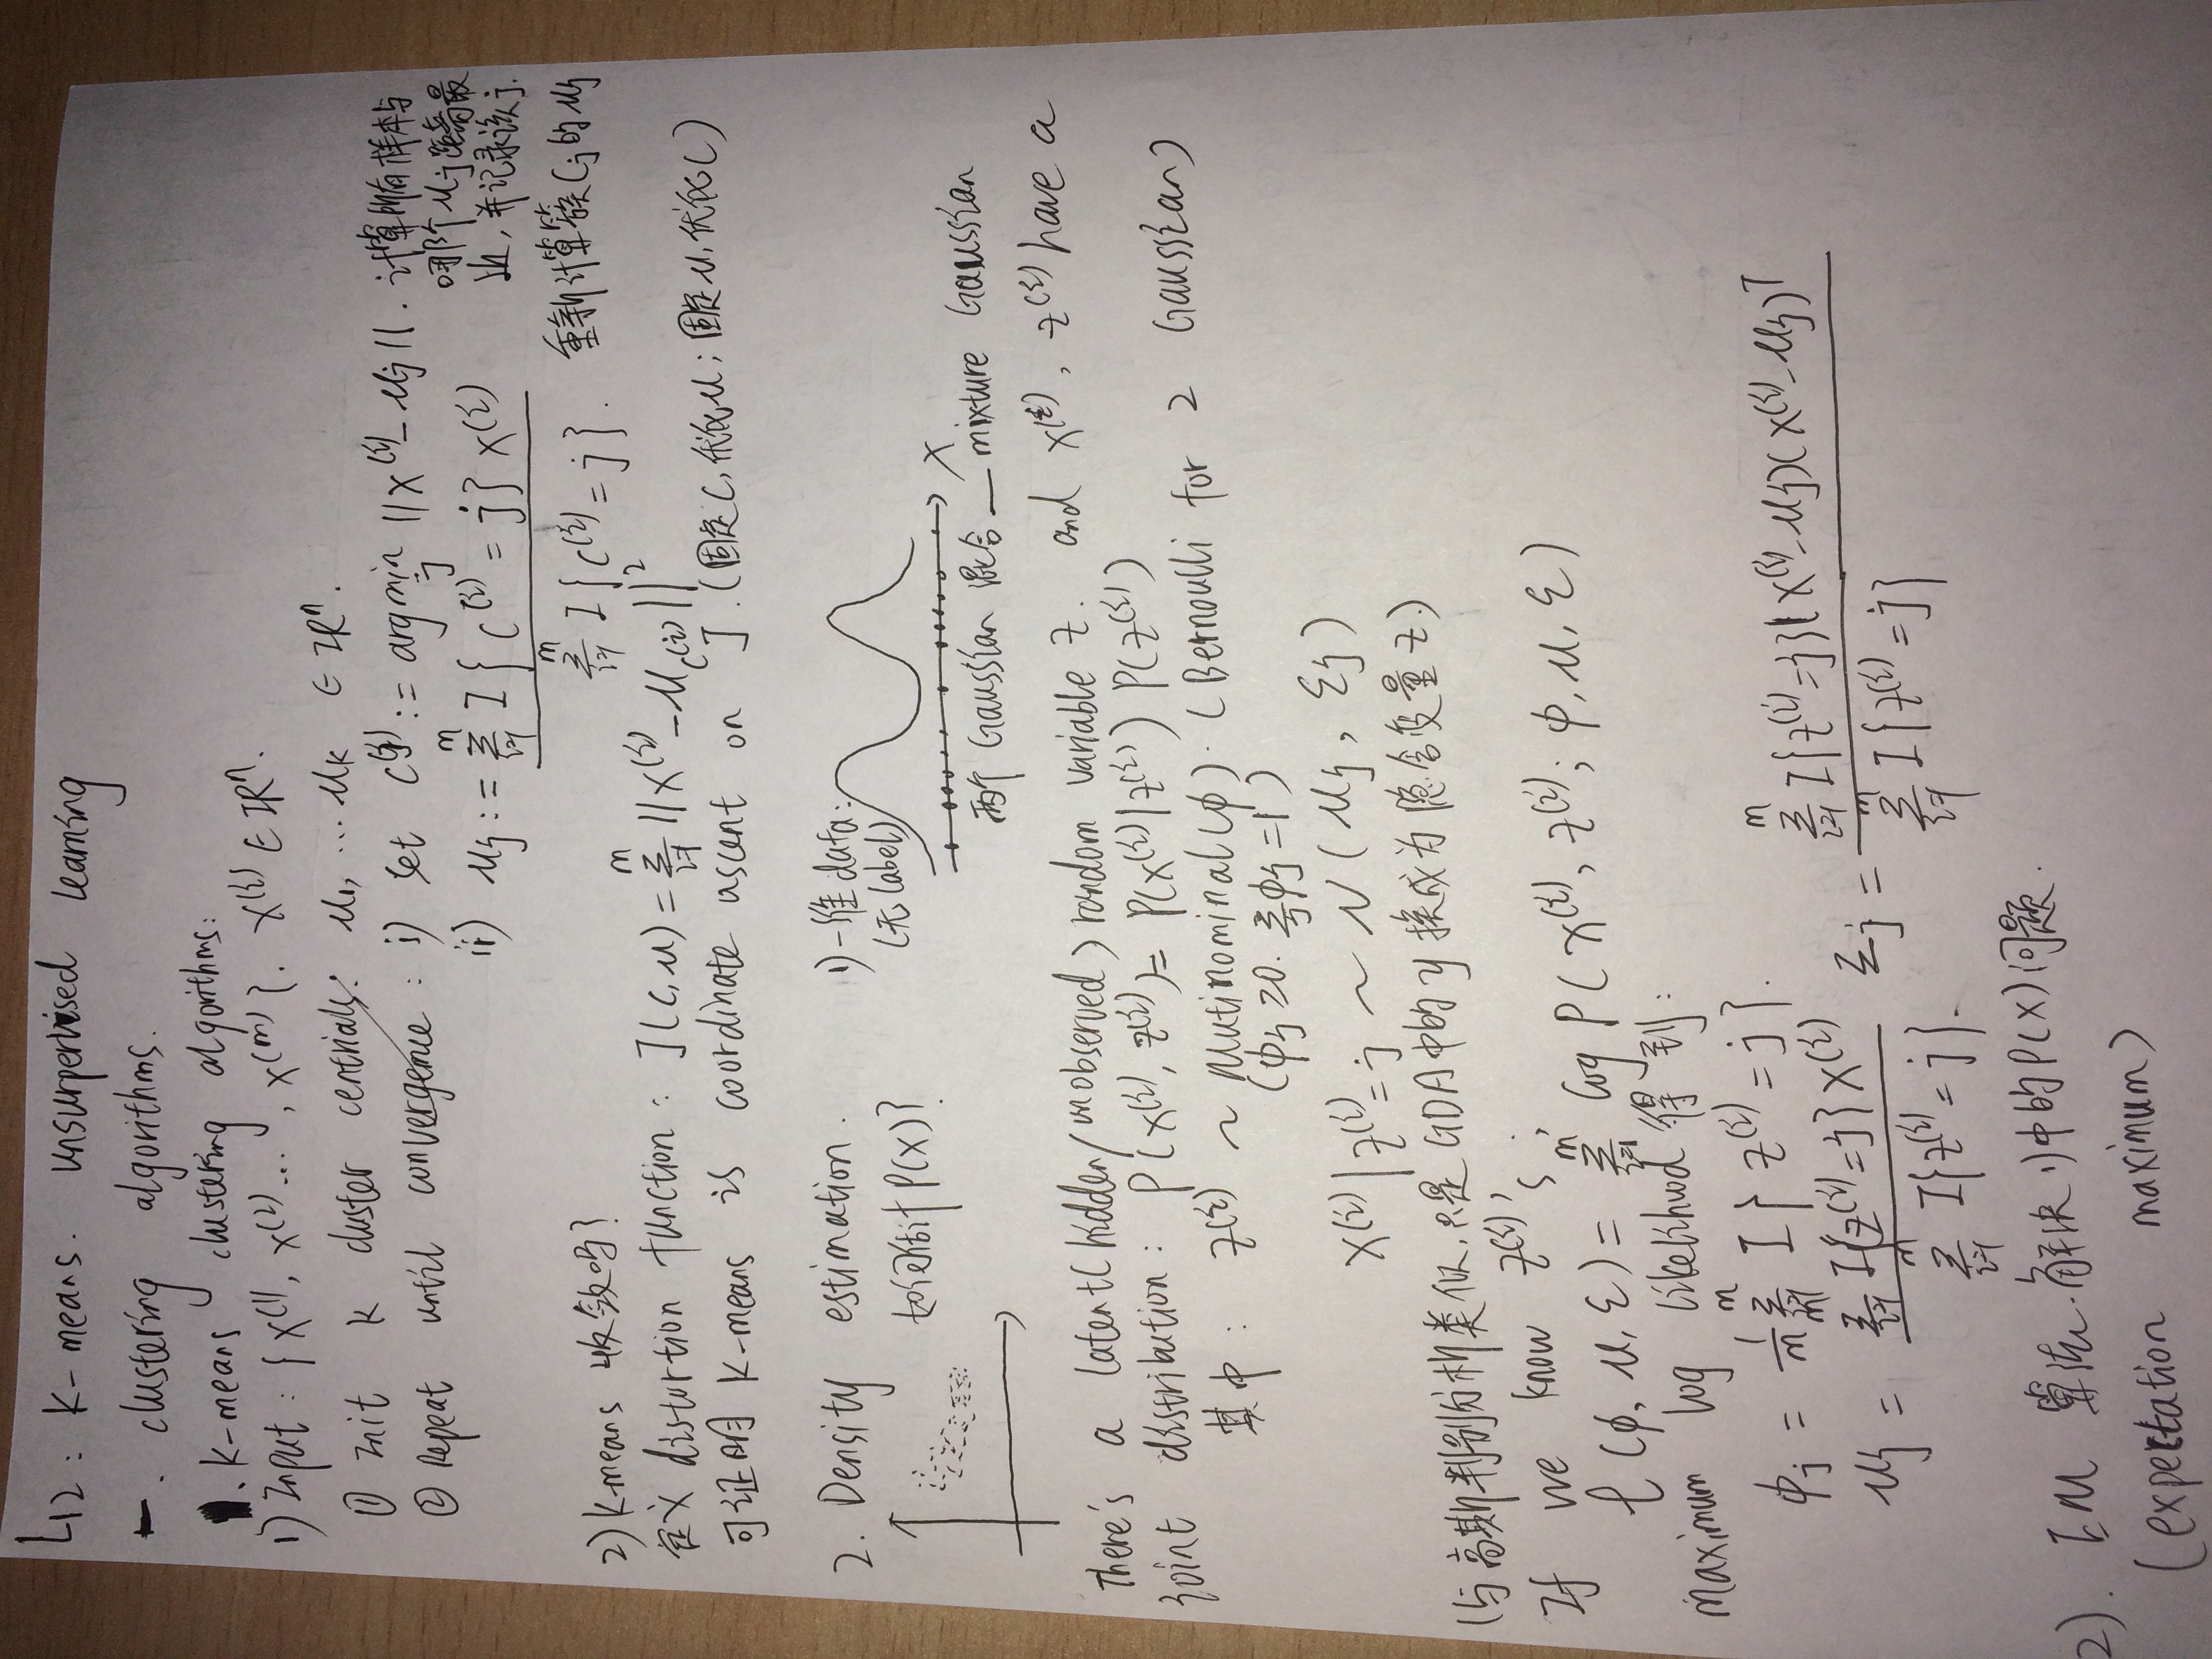 L12: K-means. unsurpervised learning
一. clustering algorithms.
1. K-means clustering algorithms:
1) Input: {x^(1), x^(2)..., x^(m)}. x^(i) ∈ IR^n.
① Init k cluster centrials: μ_1, ... μ_k ∈ IR^n.
② Repeat until convergence: i) Set c^(i) := argmin_j ||x^(i) - μ_j||. 计算所有样本与
哪个μ_j距离最
近, 并记录该j.
ii) μ_j := Σ_{i=1}^m I{c^(i) = j} x^(i) / Σ_{i=1}^m I{c^(i) = j}. 重新计算簇C_j的μ_j
2) K-means 收敛吗?
定义 distortion function: J(c, μ) = Σ_{i=1}^m ||x^(i) - μ_{c^(i)}||^2
可证明 K-means is coordinate ascent on J. (固定C, 优化μ; 固定μ, 优化C)
2. Density estimation.
如何估计P(x)?
1) 一维data:
(无label)
x
两个 Gaussian 混合 — mixture Gaussian
There's a latent (hidden/unobserved) random variable z. and x^(i), z^(i) have a
joint distribution: P(x^(i), z^(i)) = P(x^(i)|z^(i)) P(z^(i))
其中: z^(i) ~ Mutinominal(φ). (Bernoulli for 2 Gaussian)
(φ_j ≥ 0. Σ_j φ_j = 1)
x^(i)|z^(i) = j ~ N(μ_j, Σ_j)
(与高斯判别分析类似, 只是GDA中的y换成为隐含变量z.)
If we know z^(i)'s;
ℓ(φ, μ, Σ) = Σ_{i=1}^m log P(x^(i), z^(i); φ, μ, Σ)
Maximum log likelihood 得到:
φ_j = 1/m Σ_{i=1}^m I{z^(i) = j}.
μ_j = Σ_{i=1}^m I{z^(i) = j} x^(i) / Σ_{i=1}^m I{z^(i) = j}. Σ_j = Σ_{i=1}^m I{z^(i) = j}(x^(i) - μ_j)(x^(i) - μ_j)^T / Σ_{i=1}^m I{z^(i) = j}
2). EM 算法. 解决1)中的P(x)问题.
(expectation maximum)